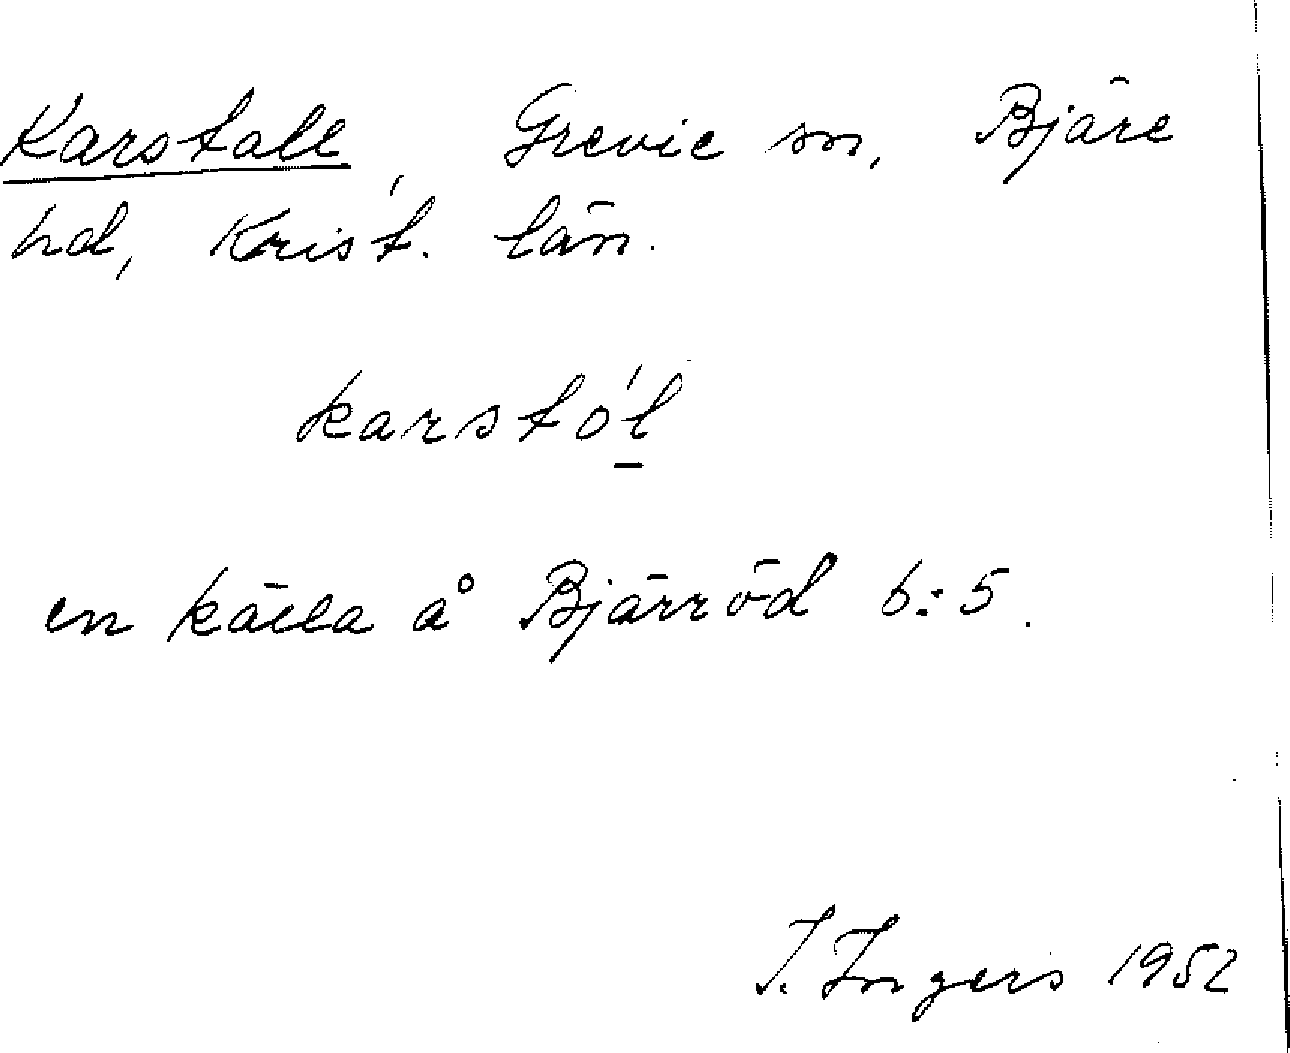 Karstall, Grevie sn, Bjäre
hd, Krist. län.
karstó̱l
en källa å Bjärröd 6:5.
I. Ingers 1952